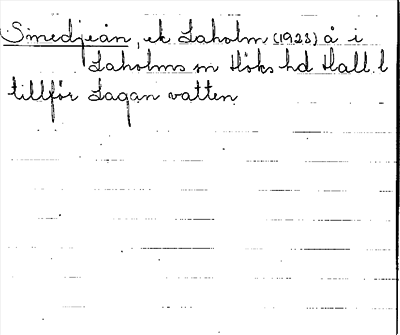 Smedjeån, ek Laholm (1923) å i
Laholms sn Höks hd Hall. l
tillför Lagan vatten